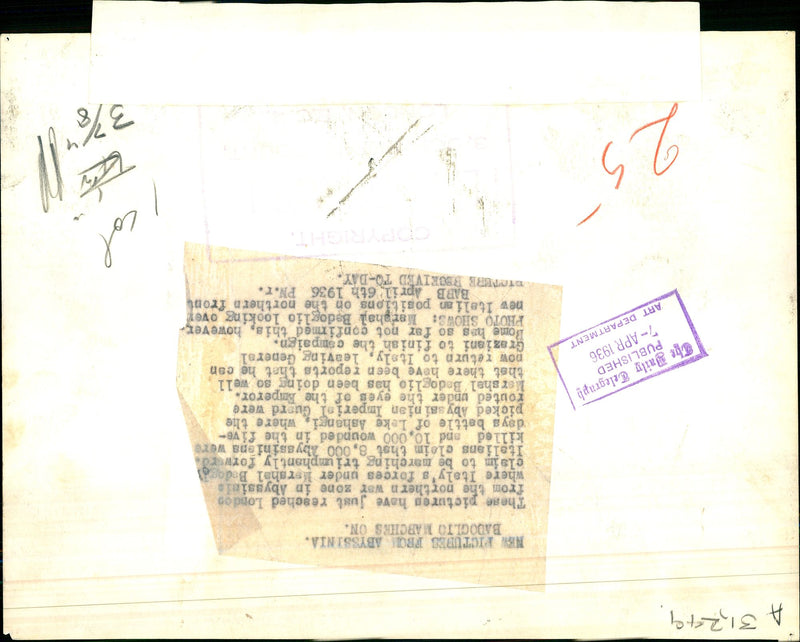 NEW PICTURES FROM ABYSSINIA.
BADOGLIO MARCHES ON.
These pictures have just reached London
from the northern war zone in Abyssinia
where Italy's forces under Marshal Badoglio
claim to be marching triumphantly forward.
Italians claim that 8,000 Abyssinians were
killed and 10,000 wounded in the five-
days battle of Lake Ashangi, where the
picked Abyssinian Imperial Guard were
routed under the eyes of the Emperor.
Marshal Badoglio has been doing so well
that there have been reports that he can
now return to Italy, leaving General
Graziani to finish the campaign.
Rome has so far not confirmed this, however.
PHOTO SHOWS: Marshal Badoglio looking over
new Italian positions on the northern front
BABB April 6th 1936 PN.r.
PICTURE RECEIVED TO-DAY.
The Daily Telegraph
PUBLISHED
7-APR 1936
ART DEPARTMENT
COPYRIGHT.
A 31,249
25
37/8
1 col